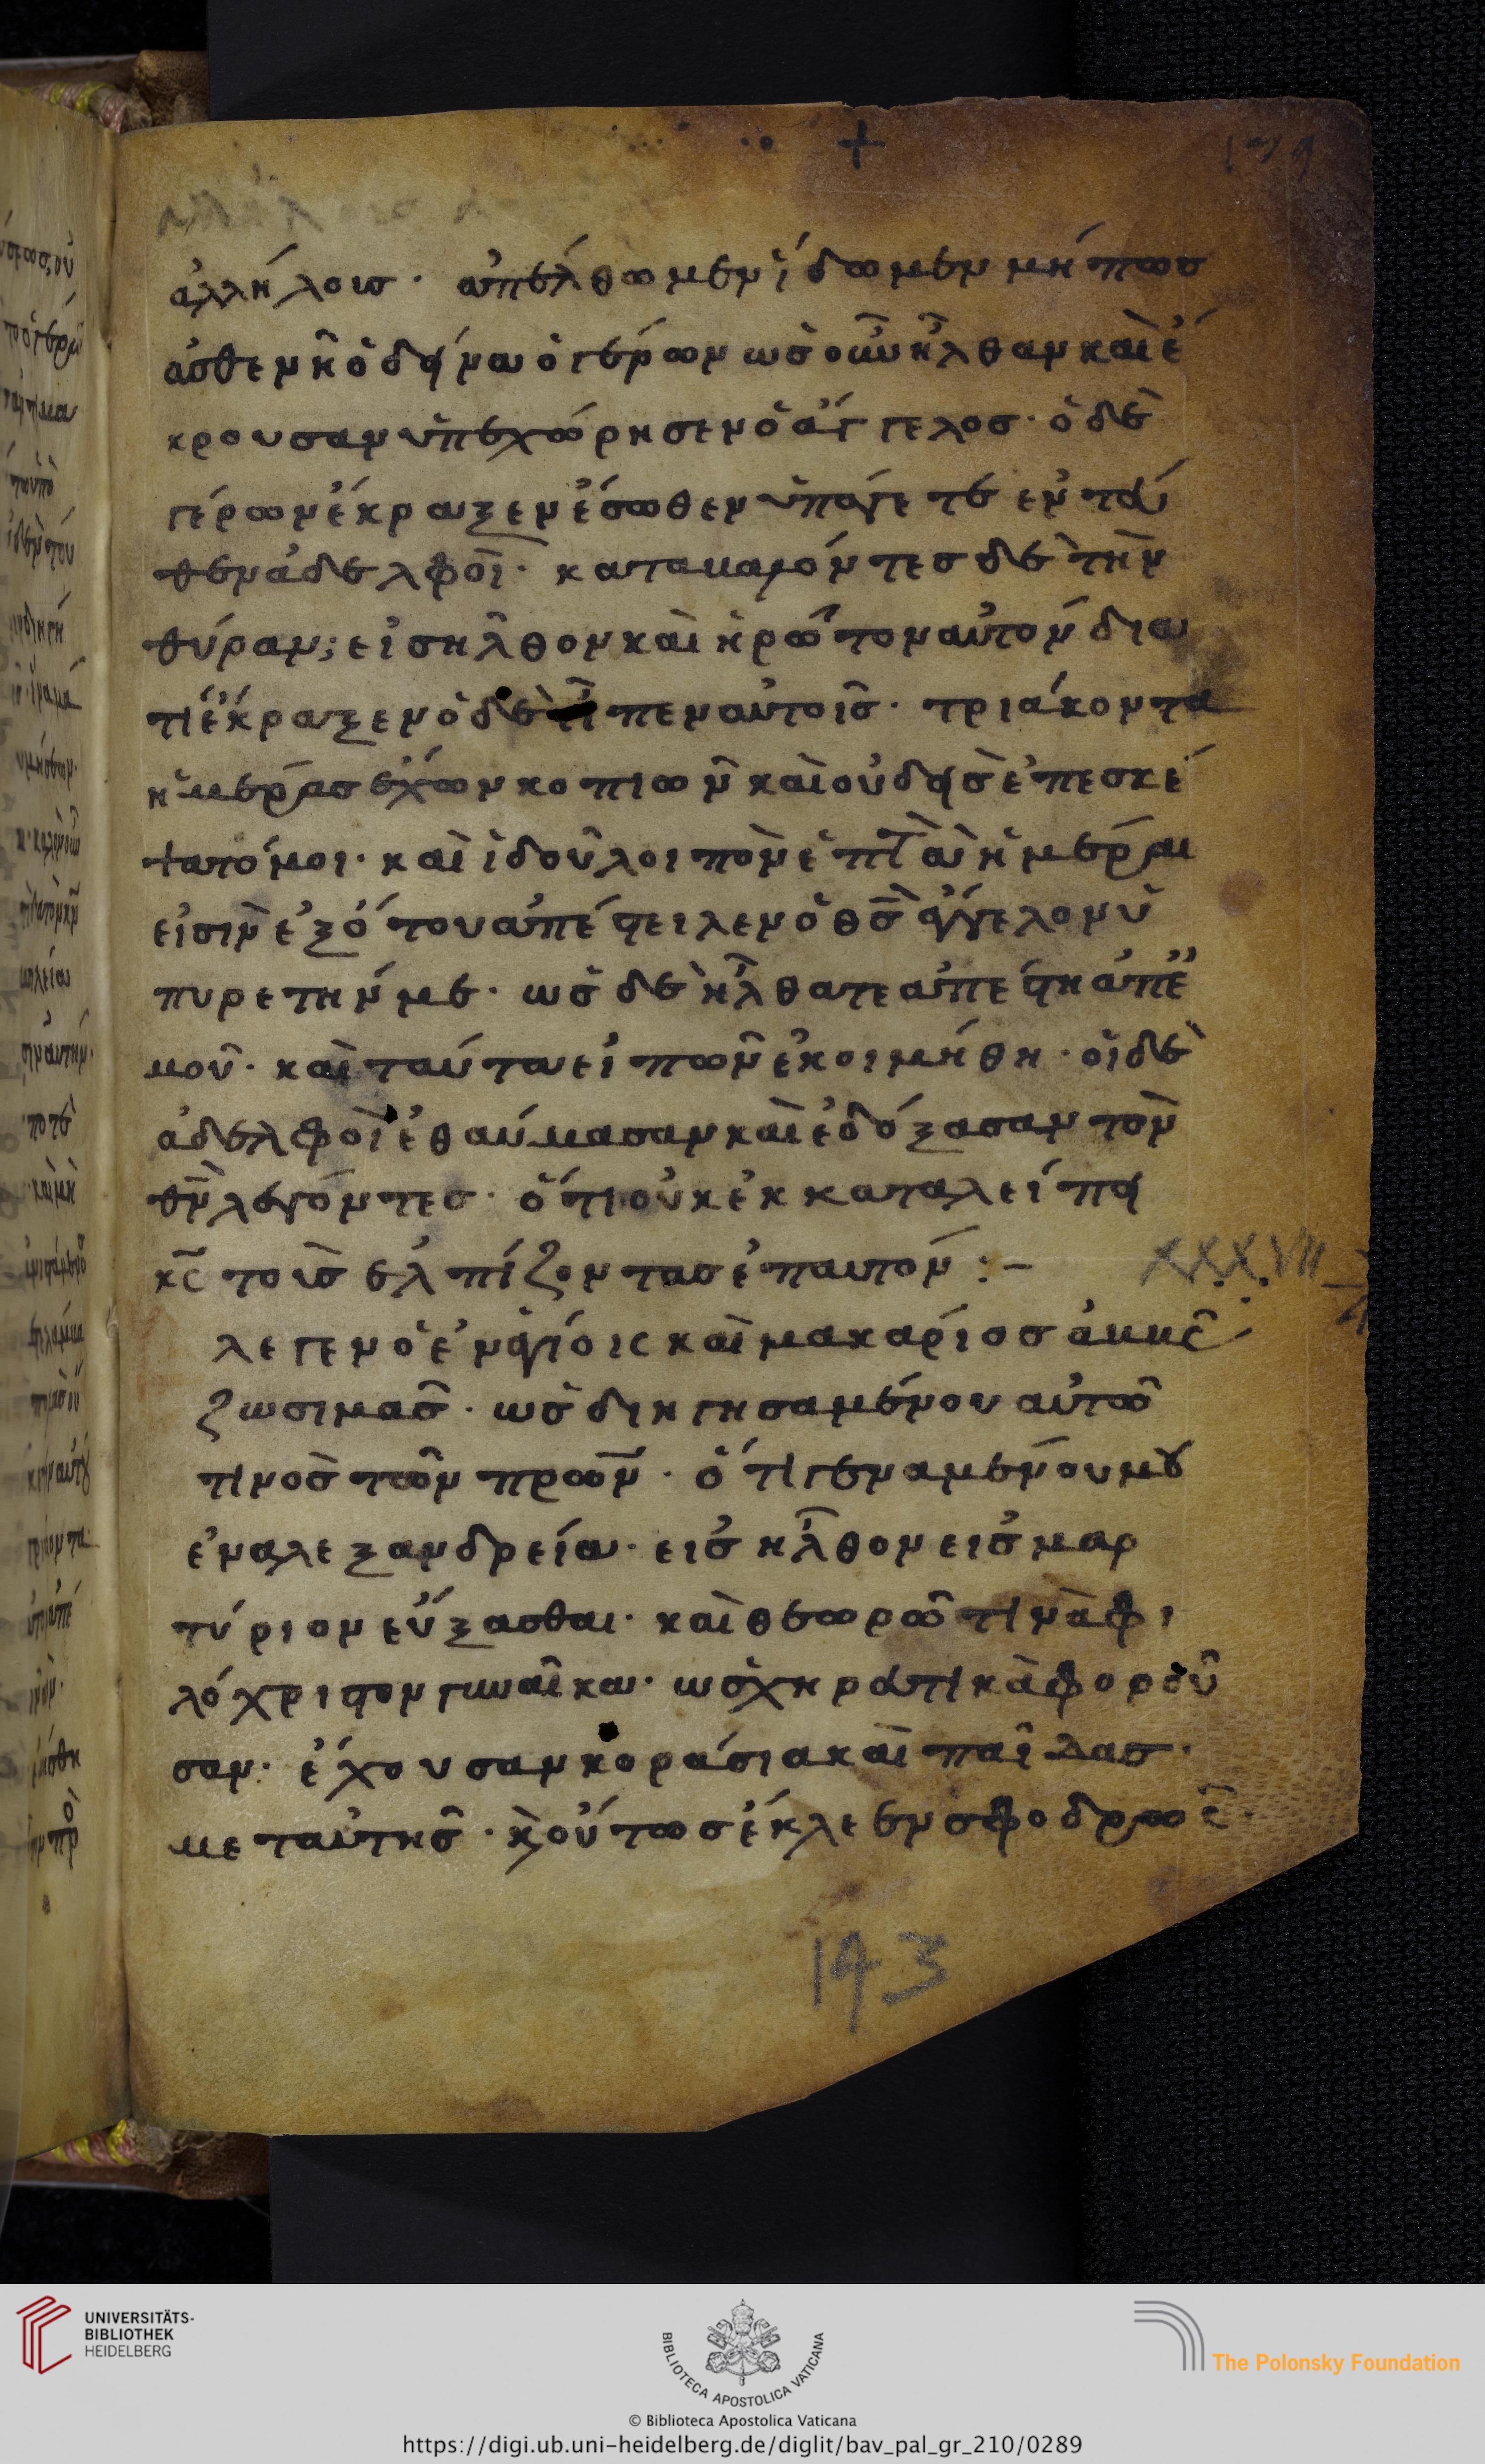 ἀλλήλοισ· ἀπέλθωμεν ἴδωμεν μήπωσ
ἀσθενῆ ὁ δεῖνα ὁ γέρων ὡσ οὖν ἦλθαν καὶ ἔ
κρουσαν ὑπεχώρησεν ὁ ἄγγελοσ· ὁ δὲ
γέρων ἔκραξεν ἔσωθεν ὑπάγετε ἐντεῦ
θεν ἀδελφοί· καταμαγόντεσ δὲ τὴν
θύραν; εἰσῆλθον καὶ ἠρώτον αὐτόν δια
τί ἔκραξεν ὁ δὲ εἶπεν αὐτοῖσ· τριάκοντα
ἡμέρασ ἔχων κοπιῶν καὶ οὐδεὶσ ἐπεσκέ
ψατό μοι· καὶ ἰδοῦ λοιπὸν ἑπτὰ ἡμέραι
εἰσιν ἐξότου ἀπέστειλεν ὁ θσ ἄγγελον ὑ
πυρετήν με· ὡσ δὲ ἤλθατε ἀπέστη ἀπέ
μοῦ· καὶ ταύτα εἰπῶν ἐκοιμήθη· οἱ δὲ
ἀδελφοὶ ἐθαύμασαν καὶ ἐδόξασαν τὸν
θν λέγόντεσ· ὅτι οὐκ ἐκκαταλείπει
κς τοῖσ ἐλπίζοντασ ἐπαυτόν:–
XXXVII
λεγεν ὁ ἐν ἁγίοις καὶ μακαρίοσ ἀμμᾶς
ζωσιμᾶσ· ὡσ διηγησαμένου αὐτῶ
τινοσ τῶν πρων· ὅτι γεναμένου μου
ἐν αλεξανδρεία· εἰσῆλθον εἰσ μαρ
τύριον εὔξασθαι· καὶ θεωρῶ τινὰ φι
λόχριστον γυναῖκα· ὡσ χηρατικὰ φοροῦ
σαν· ἔχουσαν κοράσια καὶ παῖδασ·
μεταὐτησ· κ οὕτωσ ἔκλεεν σφοδρῶς·
143
UNIVERSITÄTS-
BIBLIOTHEK
HEIDELBERG
BIBLIOTECA APOSTOLICA VATICANA
The Polonsky Foundation
© Biblioteca Apostolica Vaticana
https://digi.ub.uni-heidelberg.de/diglit/bav_pal_gr_210/0289